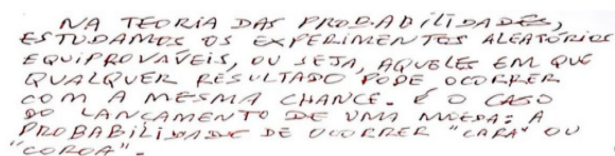 NA TEORIA DAS PROBABILIDADES,
ESTUDAMOS OS EXPERIMENTOS ALEATÓRIOS
EQUIPROVÁVEIS, OU SEJA, AQUELES EM QUE
QUALQUER RESULTADO PODE OCORRER
COM A MESMA CHANCE. É O CASO
DO LANÇAMENTO DE UMA MOEDA: A
PROBABILIDADE DE OCORRER "CARA" OU
"COROA".